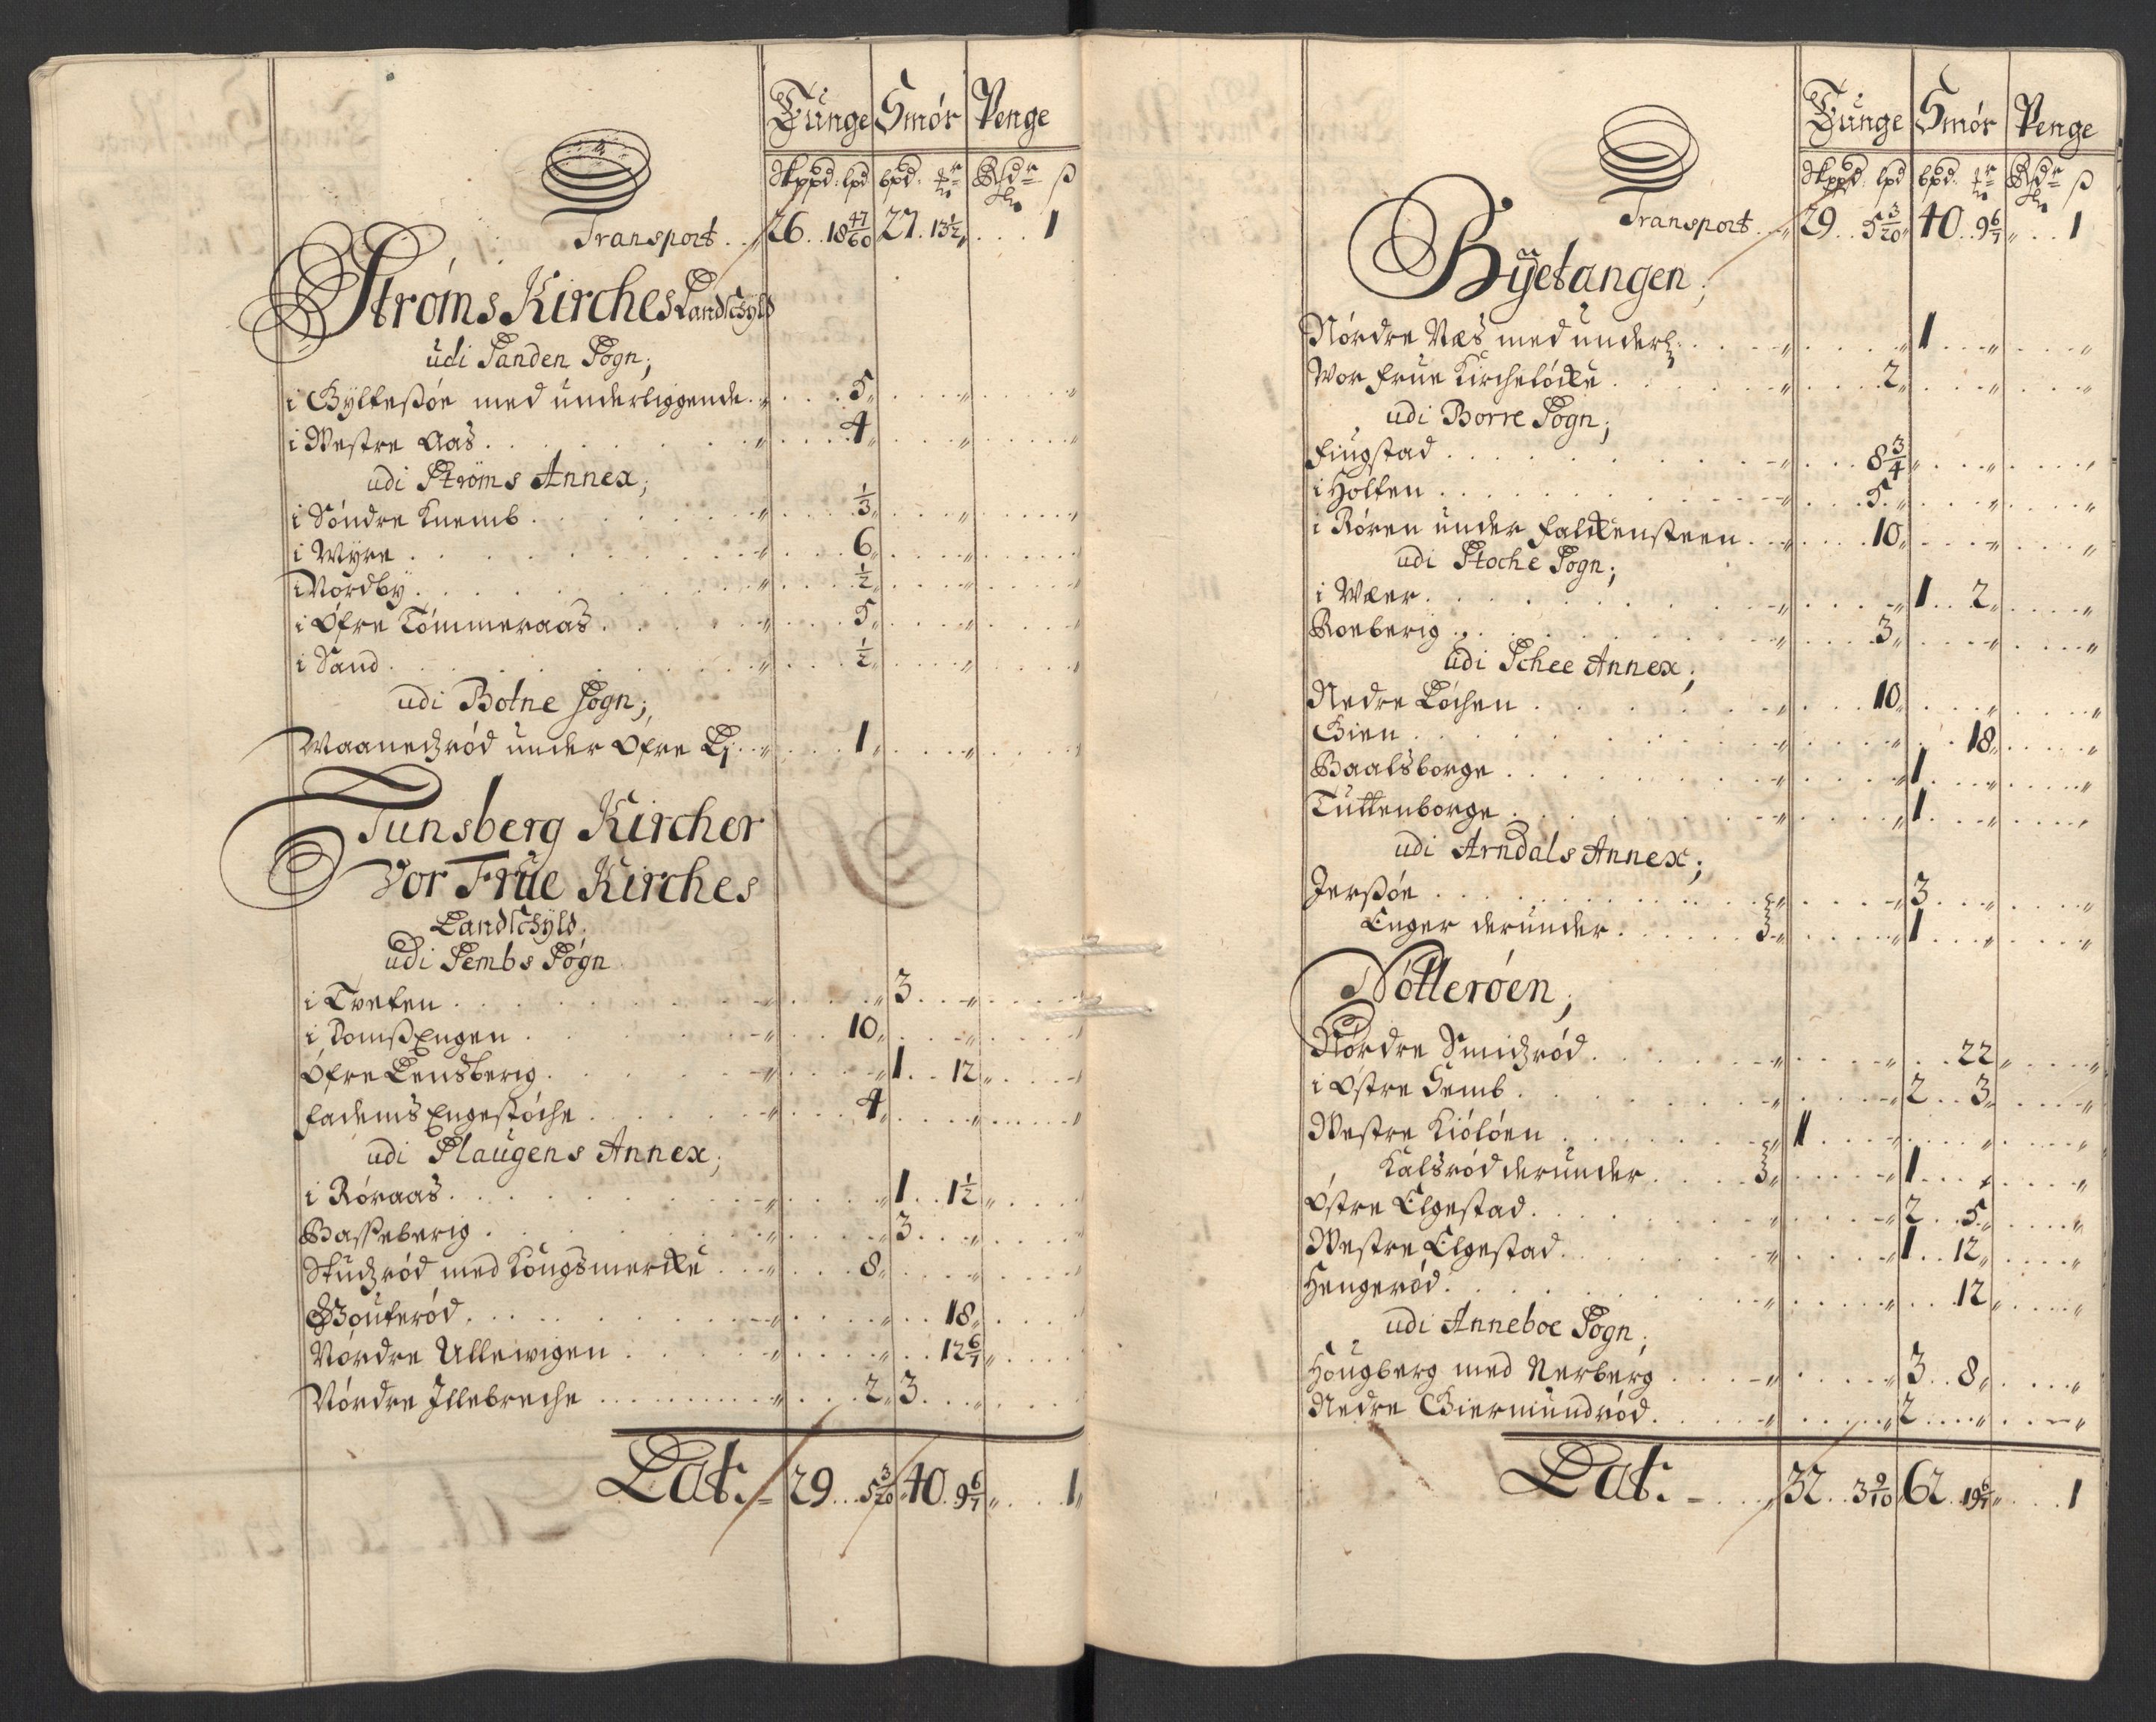 Tunge Smör Penge
Skppd: lpd bpd: Rdr ß
Transport.. 26.. 18 47/60 27. 13 1/2 .... 1
Ströms Kirches Landschyld
udi Sanden Sogn;
i Gylteßöe med underliggende.. 5
i Westre Aas. 4
udi Ströms Annex;
i Söndre Knemb. 1/3
i Wÿre. 6
i Nordbÿ. 1/2
i Öfre Tömmeraas. 5
i Sand. 1/2
udi Botne Sogn;
Waanedzröd under Öfre .. 1
Tunsberg Kircher
Vor Frue Kirches
Landschyld.
udi Sembs Sogn
i Tveten. 3
i TomßEngen. 10
Öfre Lensberig. 1.. 12
Fadems Engestöche. 4
udi Slaugens Annex;
i Röraas. 1.. 1 1/2
Basseberig. 3
Studzröd med Kongsmercke.. 8
Gouteröd. 18
Nördre Ullewigen. 12 6/7
Nördre Illebreche. 2 3
Lat: 29... 5 3/20 40. 9 6/7 .... 1
Tunge Smör Penge
Skppd: lpd bpd: Rdr ß
Transport. 29.. 5 3/20 40.. 9 6/7 ... 1
Bÿetangen;
Nördre Næs med underl: 1
Wor Frue Kirchelöcke. 2
udi Borre Sogn;
Fiugstad. 8 3/4
i Holten. 5
i Rören under Falckensteen. 10
udi Stoche Sogn;
i Wær. 1.. 2
Roeberig. 3
udi Schee Annex;
Nedre Löchen. 10
Gien. 18
Baalsborge. 1
Tuttenborge. 1
udi Arndals Annex;
Jerßöe. 3
Enger derunder. 1
Nötteröen;
Nördre Smidzröd. 22
i Östre Semb. 2.. 3
Westre Kiölöen. 1
Kalsröd derunder. 1
Östre Elgestad. 2.. 5
Westre Elgestad. 1.. 12
Hengeröd. 12
udi Anneboe Sogn;
Hougberg med Nerberg. 3.. 8
Nedre Giermundröd. 2
Lat: 32.. 3 9/10 62. 19 6/7 ... 1